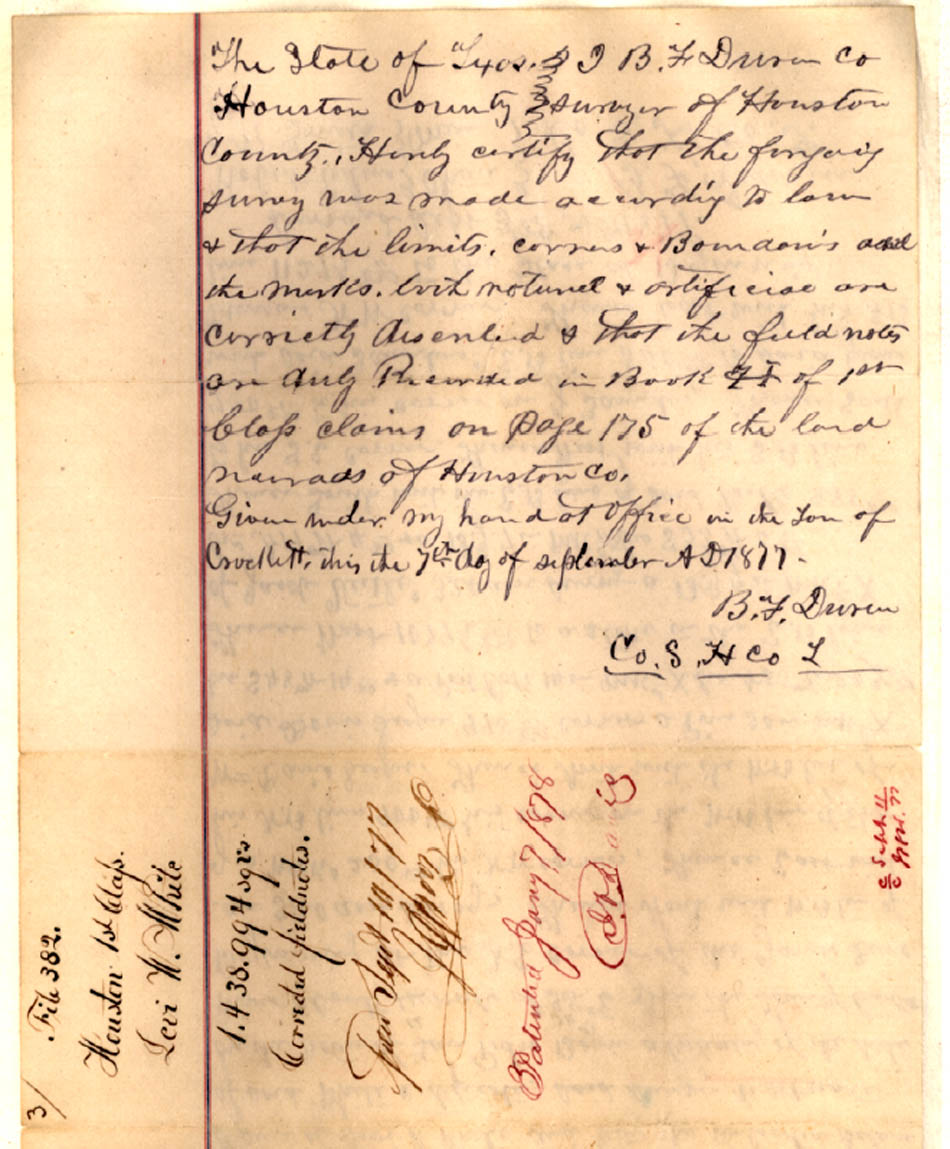 The State of Texas. I B. F. Duren Co
Houston County surveyor of Houston
County, Herby certify that the forgoing
survey was made according to law
& that the limits, corners & Boundaris and
the marks, both natural & artificial are
correctly discribed & that the field notes
are duly Recorded in Book of 1st
Class claims on Page 175 of the land
records of Houston Co.
Given under my hand at office in the Ton of
Crockett, this the 7th day of september AD 1877.
B. F. Duren
Co. S. H Co T
3/
File 382.
Houston 1st Class.
Levi W. White
1.4 38.994 sq vs
Corrected fieldnotes.
Filed Sept 17/77
Patented Jany 7 1878